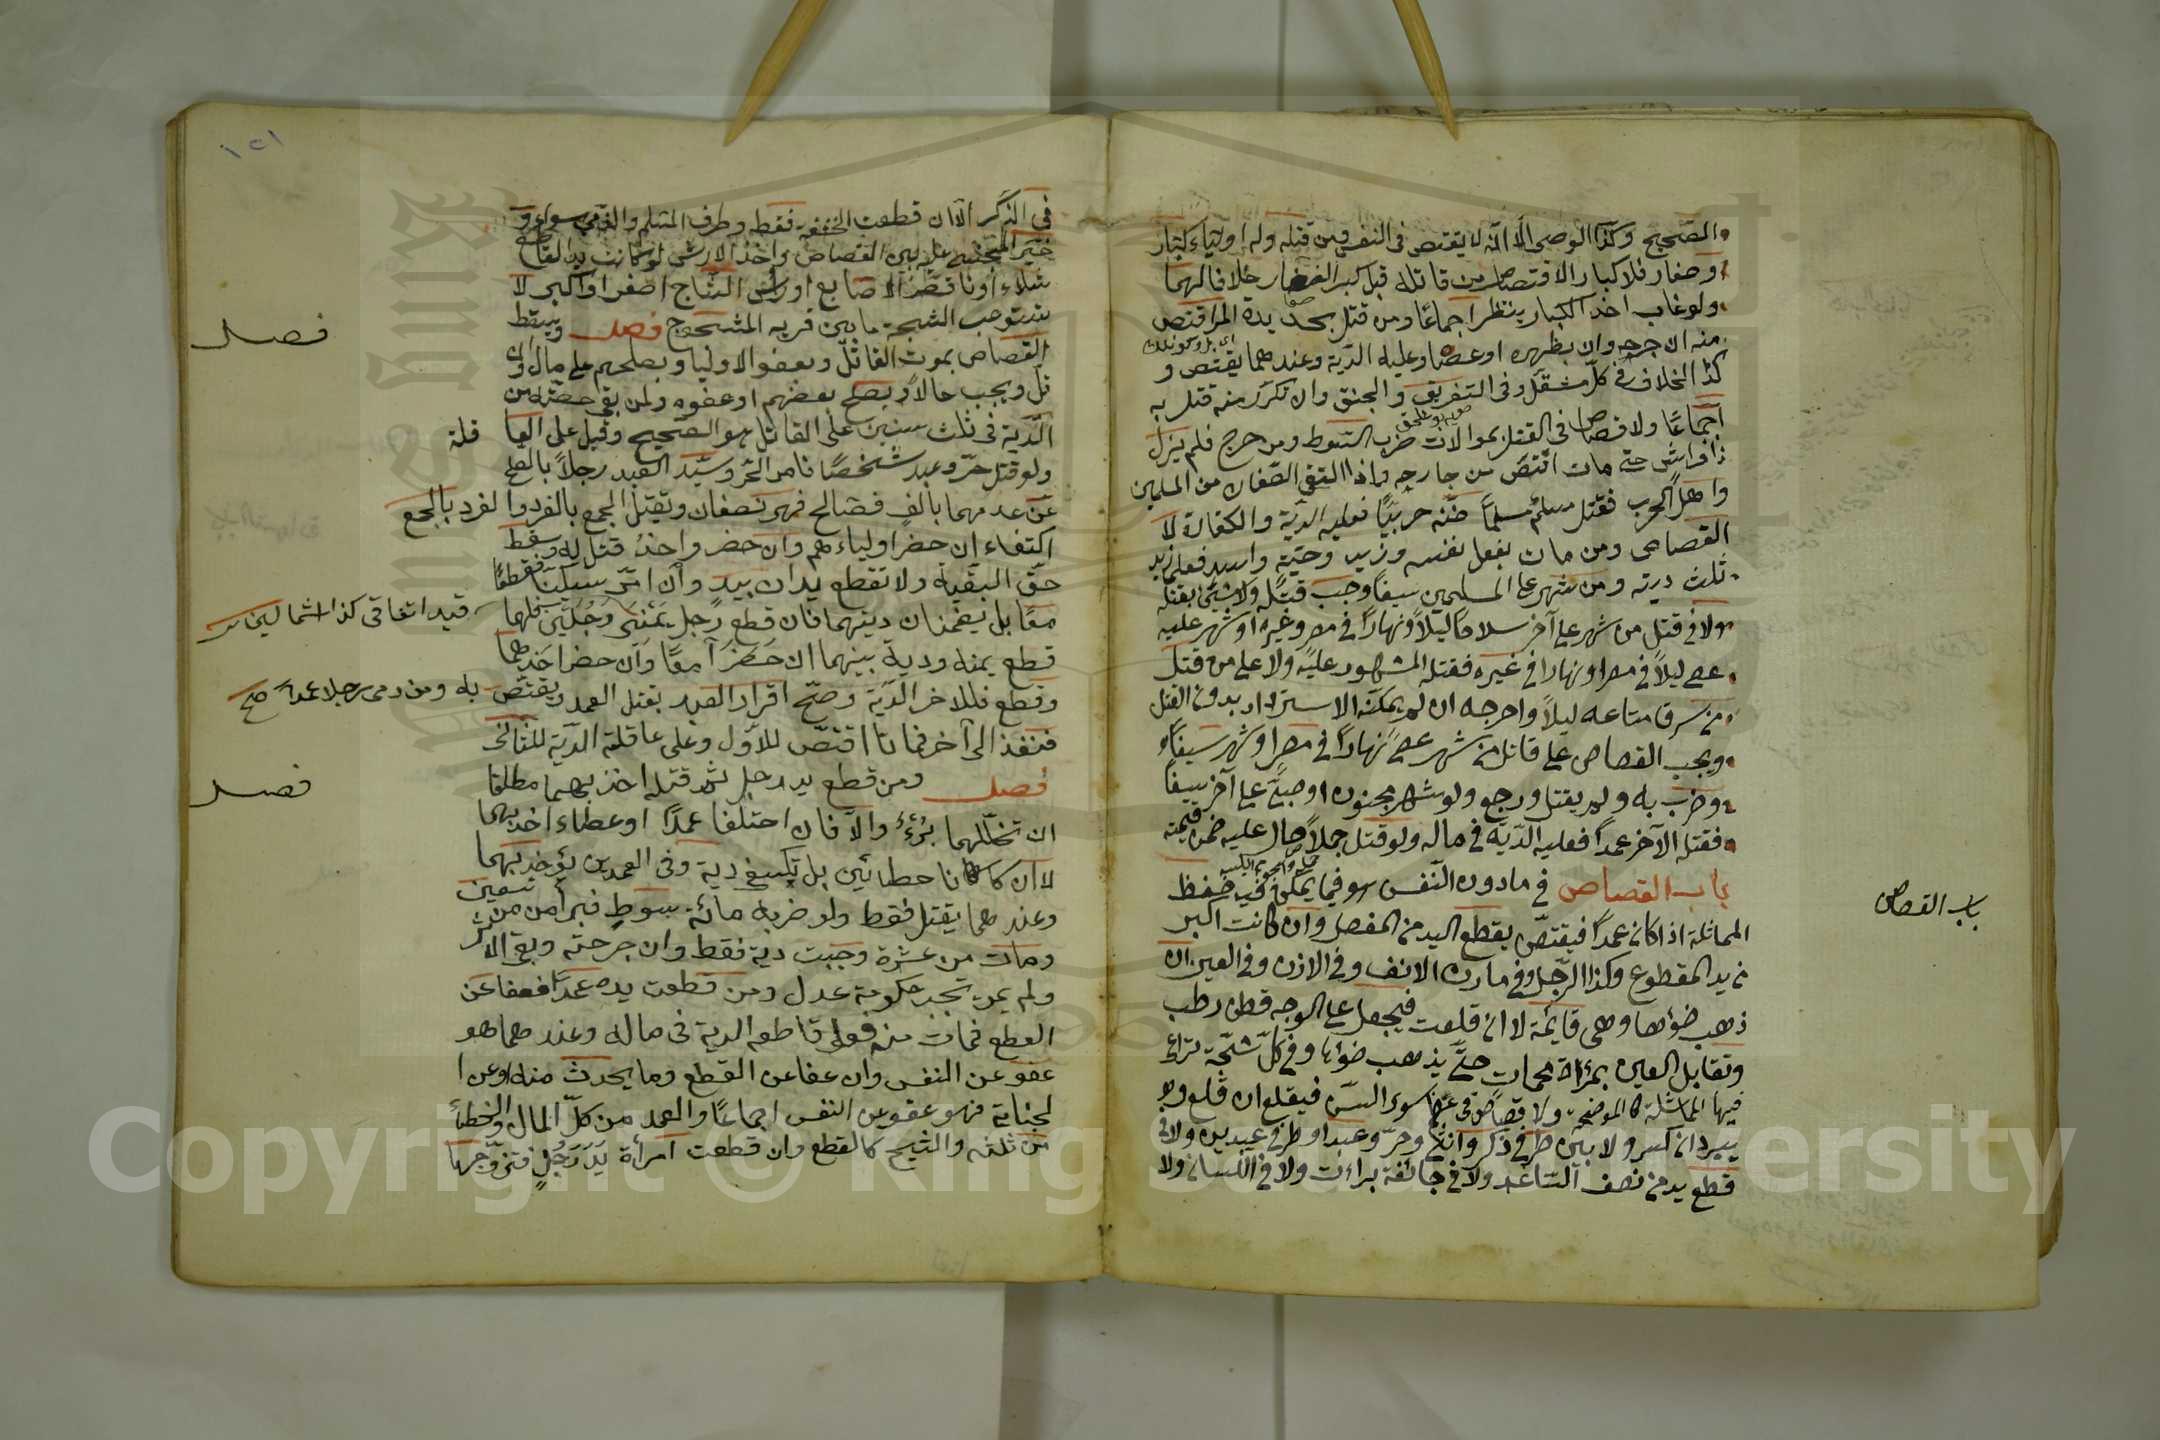 الصحيح وكذا الوصي الا انه لا يقتص في النفس ومن قتل وله اولياء كبار
وصغار فللكبار الاقتصاص من قاتله قبل كبر الصغار خلافا لهما
ولو غاب احد الكبار ينتظر اجماعا ومن قتل بحديدة المر اقتص
منه ان جرحه وان بظهره او عصا وعليه الدية وعندهما يقتص و
كذا الخلاف في كل مثقل وفي التغريق والخنق وان تكرر منه قتل به
اجماعا ولا قصاص في القتل بموالات ضرب السوط ومن جرح فلم يزل
ذا فراش حتى مات اقتص من جارحه واذا التقى الصفان من المسلمين
واهل الحرب فقتل مسلم مسلما ظنه حربيا فعليه الدية والكفارة لا
القصاص ومن مات بفعل نفسه وزيد وحية واسد فعلى زيد
ثلث ديته ومن شهر على المسلمين سيفا وجب قتله ولا شيء بقتله
ولا في قتل من شهر على آخر سلاحا ليلا ونهارا في مصر وغيره او شهر عليه
عصى ليلا في مصر او نهارا في غيره فقتله المشهور عليه ولا على من قتل
من سرق متاعه ليلا واخرجه ان لم يمكنه الاسترداد بدون القتل
ويجب القصاص على قاتل من شهر عصى نهارا في مصر او شهر سيفا و
وضرب به ولم يقتل ورجع ولو شهر مجنون او صبي على آخر سيفا
فقتله الآخر عمدا فعليه الدية في ماله ولو قتل جملا صال عليه ضمن قيمته
باب القصاص في ما دون النفس هو فيما يمكن فيه حفظ
باب القصاص
المماثلة اذا كان عمدا فيقتص بقطع اليد من المفصل وان كانت اكبر
من يد المقطوع وكذا الرجل وفي مارن الانف وفي الاذن وفي العين ان
ذهب ضوءها وهي قائمة لا ان قلعت فيجعل على الوجه قطن رطب
وتقابل العين بمرآة محمات حتى يذهب ضوءها وفي كل شجة تراعى
فيها المماثلة كالموضحة ولا قصاص في عظم سوى السن فيقلع ان قلع و
يبرد ان كسر ولا بين طرفي ذكر وانثى وحر وعبد او طرفي عبدين ولا في
قطع يد من نصف الساعد ولا في جائفة براءت ولا في اللسان ولا
١٢١
في الذكر الا ان قطعت الحشفة فقط وطرف المسلم والذمي سواء و
خير المجني عليه بين القصاص واخذ الارش لو كانت يد القاطع
شلاء او ناقصة الاصابع او رأس الشاج اصغر او اكبر لا
تستوعب الشجة ما بين قرنيه المشجوج فصل ويسقط
فصل
القصاص بموت القاتل وبعفو الاوليا وبصلحهم على مال وان
قل ويجب حالا وبصلح بعضهم او عفوه ولمن بقي حصته من
الدية في ثلث سنين على القاتل هو الصحيح وقيل على العا قلة
ولو قتل حر وعبد شخصا فامر الحر وسيد العبد رجلا بالصلح
عن عدمهما بالف فصالح فهي نصفان ويقتل الجمع بالفرد والفرد بالجمع
اكتفاء ان حضر اولياءهم وان حضر واحد قتل له وسقط
حق البقية ولا تقطع يدان بيد وان امرا سكينا فقطعا
معا بل يضمنان ديتهما فان قطع رجل يمنى رجلين فلهما
قيد اتفاقي كذا الشمالين
قطع يمينه ودية بينهما ان حضرا معا وان حضر احدهما
وقطع فللاخر الدية وصح اقرار العبد بقتل العمد ويقتص به ومن رمى رجلا عمدا صح
فنفذ الى آخر فماتا اقتص للاول وعلى عاقلة الدية للثاني
فصل ومن قطع يد رجل ثم قتله اخذ بهما مطلقا
فصل
ان تخللهما برء والا فان اختلفا عمدا او خطاء اخذ بهما
لا ان كانا خطائين بل تكفي دية وفي العمدين يؤخذ بهما
وعندهما يقتل فقط ولو ضربه مائة سوط فبرأ من تسعين
ومات من عشرة وجبت دية فقط وان جرحته وبقي الاثر
ولم يمت تجب حكومة عدل ومن قطعت يده عمدا فعفا عن
القطع فمات منه فعلى قاطعه الدية في ماله وعندهما هو
عفو عن النفس وان عفا عن القطع وما يحدث منه او عن ا
لجناية فهو عفو عن النفس اجماعا والعمد من كل المال والخطأ
من ثلثه والشج كالقطع وان قطعت امرأة يد رجل فتزوجها
Copyright © King Saud University